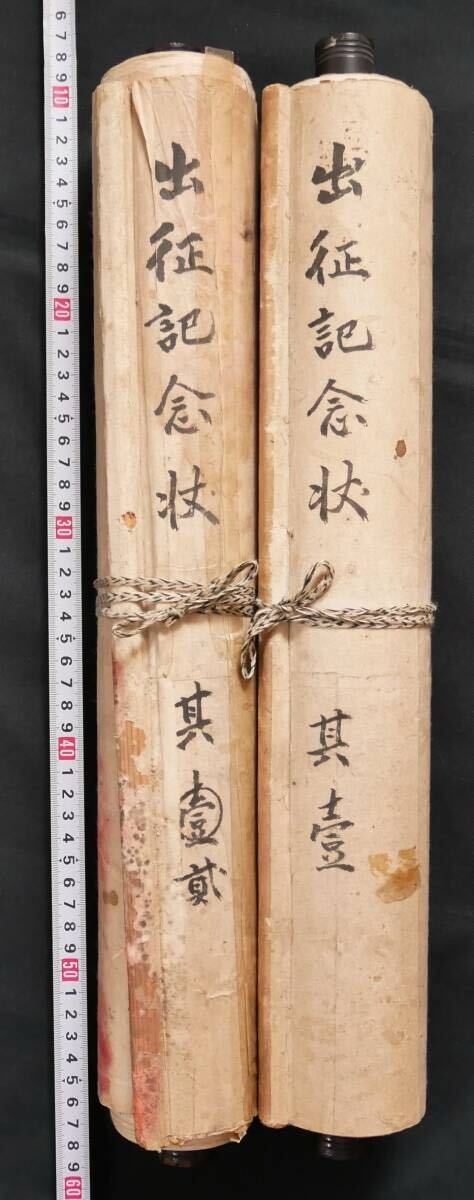 出征記念状 其壹
出征記念状 其壹貳
6
7
8
9
10
1
2
3
4
5
6
7
8
9
20
1
2
3
4
5
6
7
8
9
30
1
2
3
4
5
6
7
8
9
40
1
2
3
4
5
6
7
8
9
50
1
2
3
4
5
6
7
8
9
60